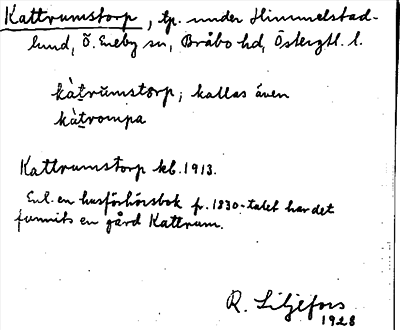 Kattrumstorp, tp. under Himmelstad-
lund, Ö. Eneby sn, Bråbo hd, Östergtl. l.
kàtrùmstòrp; kallas även
kàtrompa
Kattrumstorp kb. 1913.
Enl. en husförhörsbok fr. 1830-talet har det
funnits en gård Kattrum.
R. Liljefors
1928